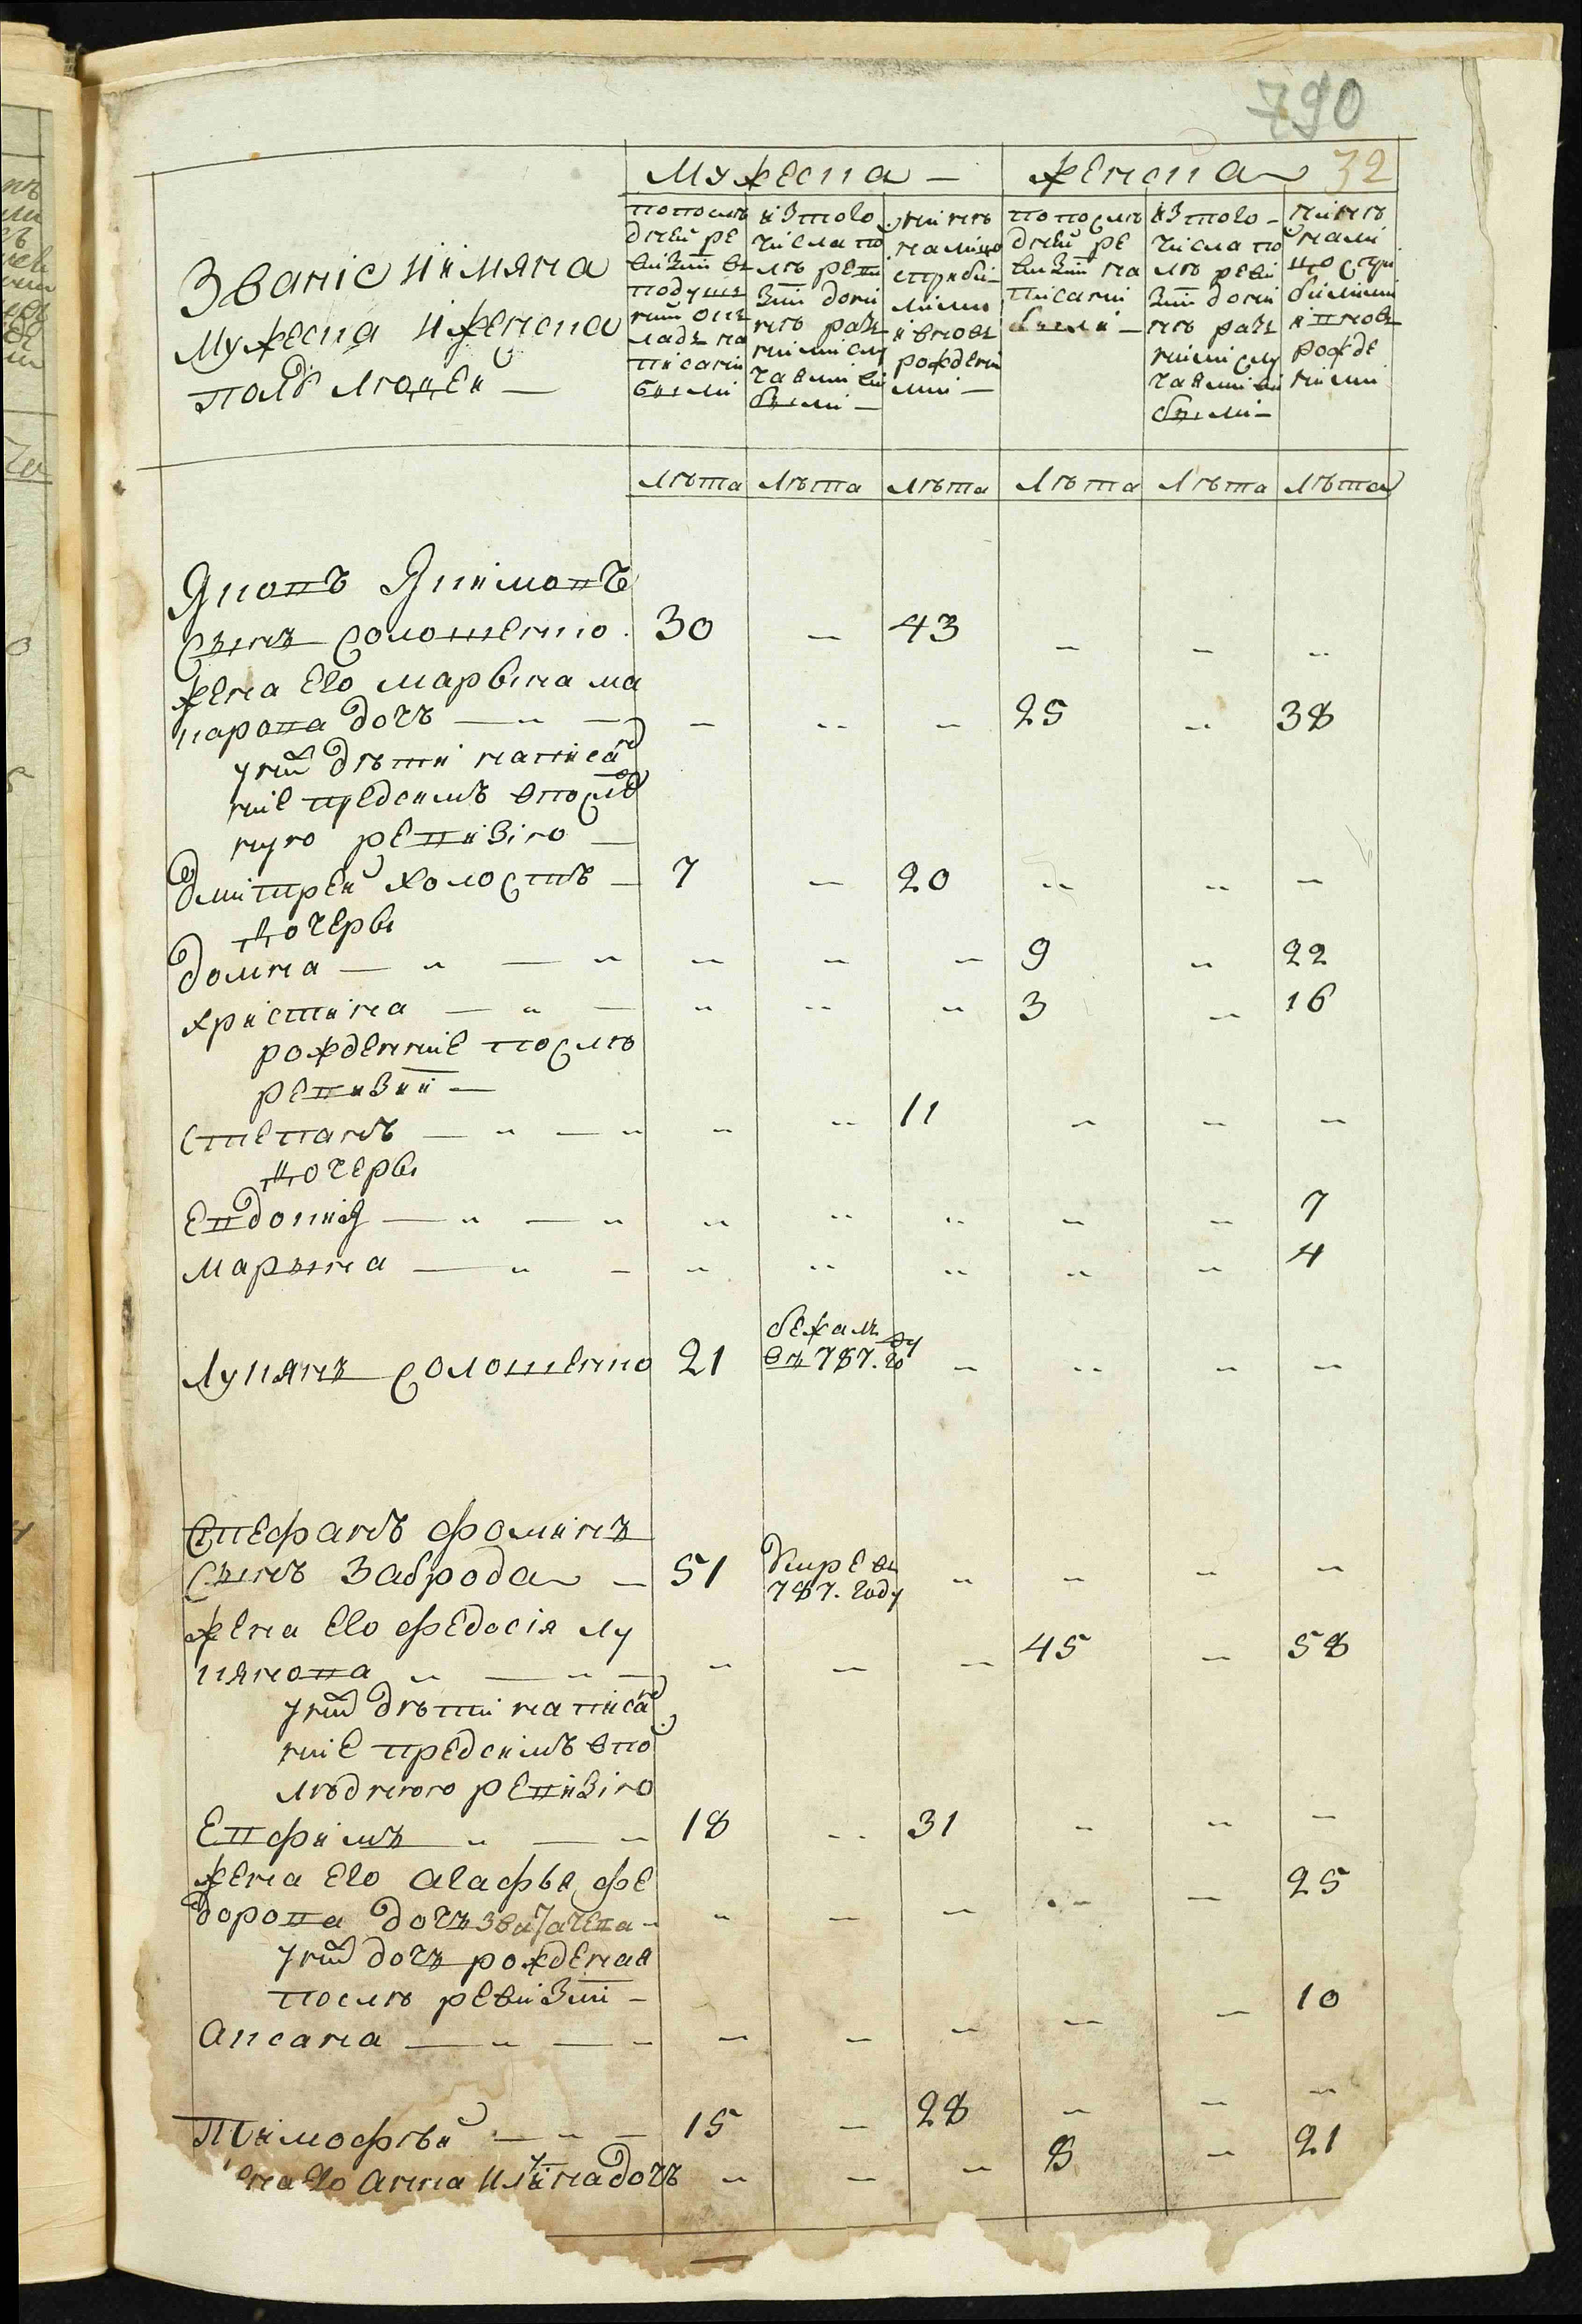 790
32
Мужеска — женска
Званіе иимяна
мужеска иженска
полу людей —
попослѣ
дней ре
визіи въ
подуш
ний ок
ладъ на
писани
были
изтого
числа по
слѣ реви
зіи дони
нѣ разъ
ними слу
чаями ви
были —
нинѣ
налицо
сприби
лими
ивновъ
рождени
ми —
попослѣ
дней ре
визіи на
писани
были —
изтого —
числа по
слѣ реви
зіи дони
нѣ разъ
ними слу
чаями ви
были —
нинѣ
нали
цо спри
билими
ивновъ
рожде
ними
лѣта лѣта лѣта лѣта лѣта лѣта
Яковъ Якимовъ
сынъ Солошенко 30 43
жена его Марвина Ма
карова дочъ 25 38
у них дѣти написан
ние предсимъ впослед
нуго ревизіго —
Дмитрей холостъ 7 20
дочеры
Домна 9 22
Христина 3 16
рожденние послѣ
ревизии —
Степанъ 11
дочеры
Евдокия 7
Марына 4
Лукянъ Солошенко 21 бежалъ въ 787. году
Стефанъ Фоминъ
сынъ Заброда 51 умре въ 787. году
жена его Федосія Лу
кянова 45 58
у них дѣти написан
ние предсимъ впос
лѣдного ревизіго
Евфимъ 18 31
жена его Агафья Фе
дорова дочъ 25
у них дочъ рожденая
послѣ ревизіи —
Аксана 10
Тимофѣй 15 28
на его Анна Илина дочъ 8 21